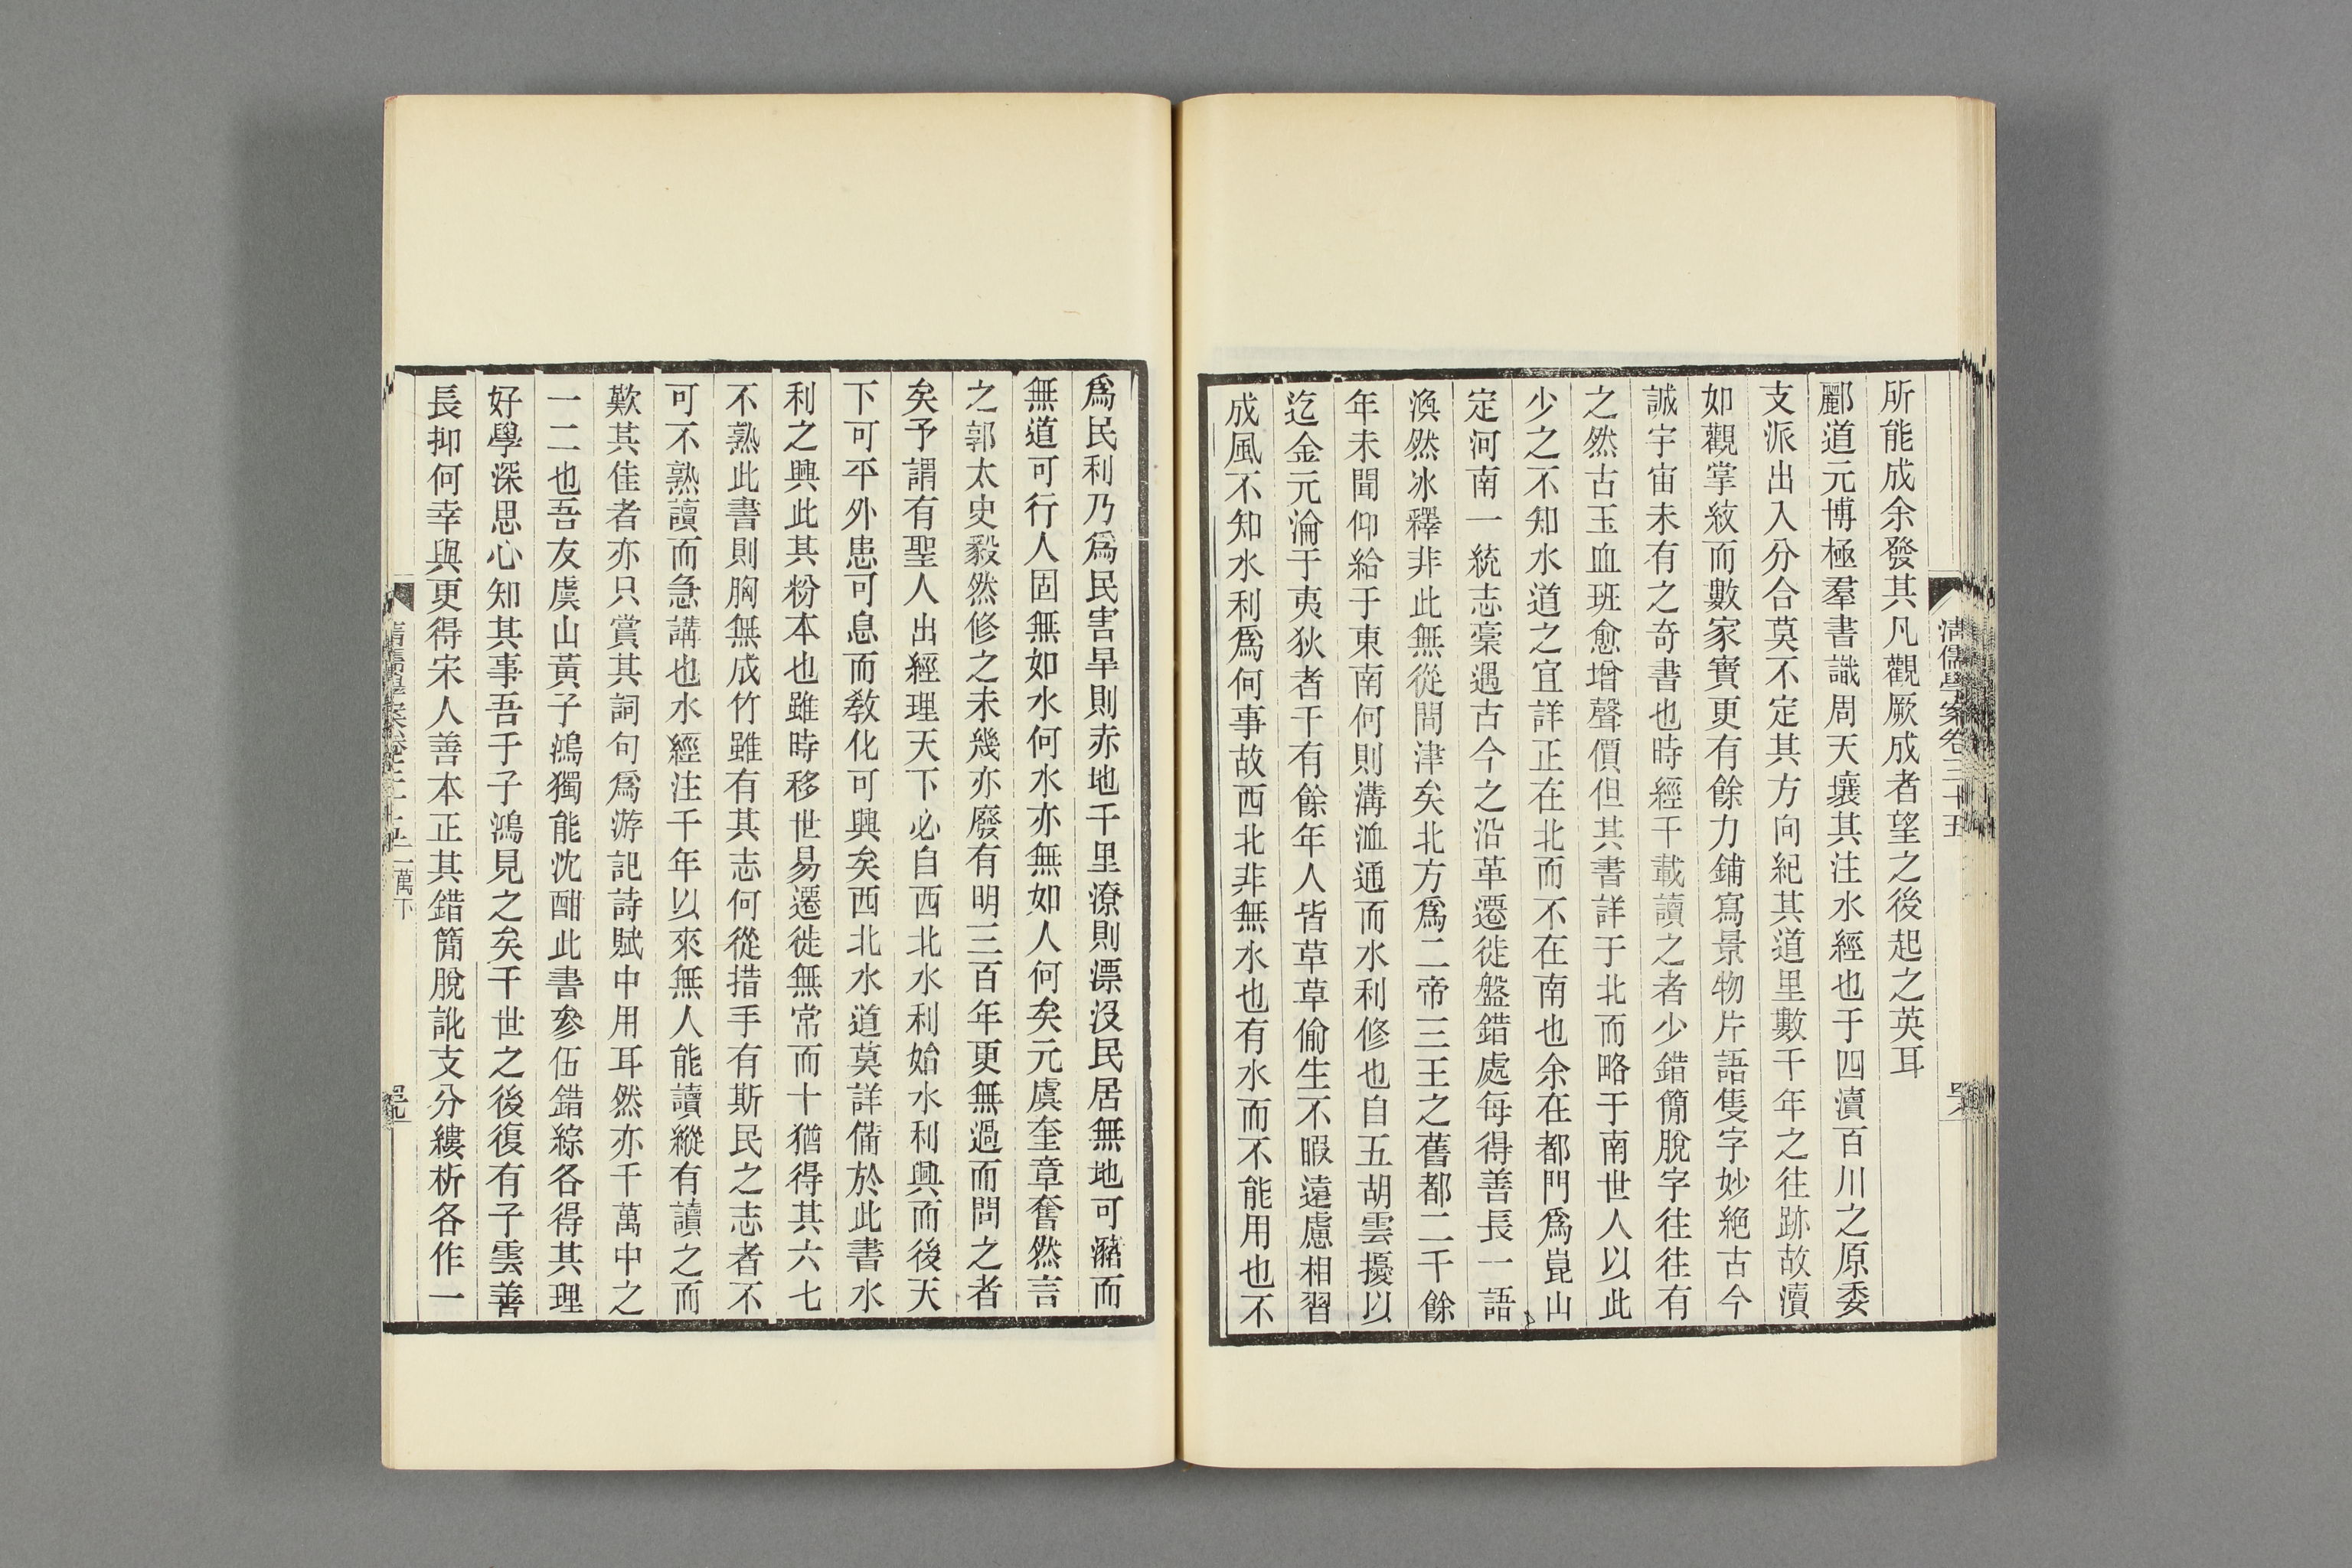 清儒學案卷三十五
所能成余發其凡觀厥成者望之後起之英耳
酈道元博極羣書識周天壤其注水經也于四瀆百川之原委
支派出入分合莫不定其方向紀其道里數千年之往跡故瀆
如觀掌紋而數家寶更有餘力鋪寫景物片語隻字妙絶古今
誠宇宙未有之奇書也時經千載讀之者少錯簡脫字往往有
之然古玉血班愈增聲價但其書詳于北而略于南世人以此
少之不知水道之宜詳正在北而不在南也余在都門爲崑山
定河南一統志稾遇古今之沿革遷徙盤錯處每得善長一語
渙然冰釋非此無從問津矣北方爲二帝三王之舊都二千餘
年未聞仰給于東南何則溝洫通而水利修也自五胡雲擾以
迄金元淪于夷狄者千有餘年人皆草草偷生不暇遠慮相習
成風不知水利爲何事故西北非無水也有水而不能用也不
爲民利乃爲民害旱則赤地千里潦則漂沒民居無地可瀦而
無道可行人固無如水何水亦無如人何矣元虞奎章奮然言
之郭太史毅然修之未幾亦廢有明三百年更無過而問之者
矣予謂有聖人出經理天下必自西北水利始水利興而後天
下可平外患可息而敎化可興矣西北水道莫詳備於此書水
利之興此其粉本也雖時移世易遷徙無常而十猶得其六七
不熟此書則胸無成竹雖有其志何從措手有斯民之志者不
可不熟讀而急講也水經注千年以來無人能讀縱有讀之而
歎其佳者亦只賞其詞句爲游記詩賦中用耳然亦千萬中之
一二也吾友虞山黃子鴻獨能沈酣此書參伍錯綜各得其理
好學深思心知其事吾于子鴻見之矣千世之後復有子雲善
長抑何幸與更得宋人善本正其錯簡脫訛支分縷析各作一